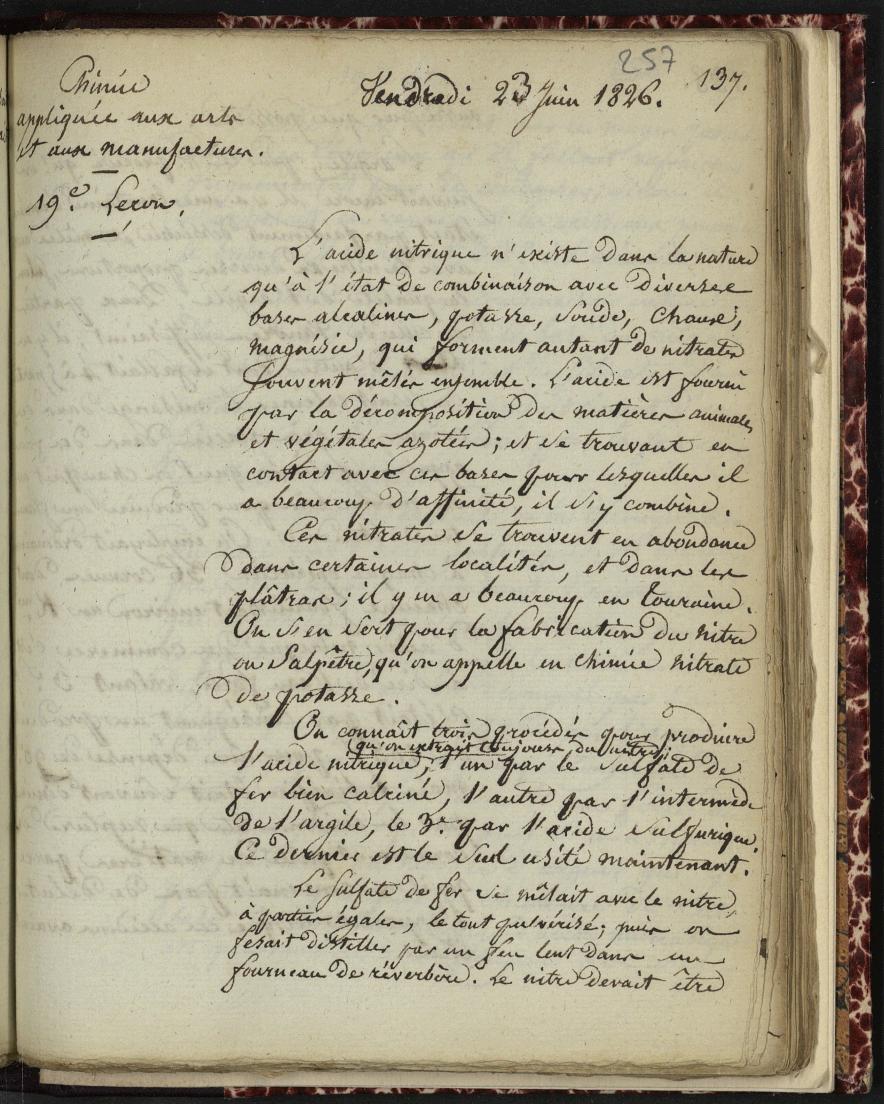 257
137.
Chimie
appliquée aux arts
et aux manufactures.
19e. Leçon.
Vendredi 23 Juin 1826.
L'acide nitrique n'existe dans la nature
qu'à l'état de combinaison avec diverses
bases alcalines, potasse, soude, chaux,
magnésie, qui forment autant de nitrates
souvent mêlés ensemble. L'acide est fourni
par la décomposition des matières animales
et végétales azotées; et se trouvant en
contact avec ces bases pour lesquelles il
a beaucoup d'affinité, il s'y combine.
Ces nitrates se trouvent en abondance
dans certaines localités, et dans les
plâtras; il y en a beaucoup en Touraine.
On s'en sert pour la fabrication du nitre
ou Salpêtre, qu'on appelle en chimie nitrate
de potasse.
On connaît trois procédés pour produire
(qu'on extrait toujours du nitre)
l'acide nitrique, l'un par le sulfate de
fer bien calciné, l'autre par l'intermède
de l'argile, le 3e. par l'acide sulfurique.
Ce dernier est le seul usité maintenant.
Le sulfate de fer se mêlait avec le nitre,
à parties égales, le tout pulvérisé; puis on
fesait distiller par un feu lent dans un
fourneau de réverbère. Le nitre devait être